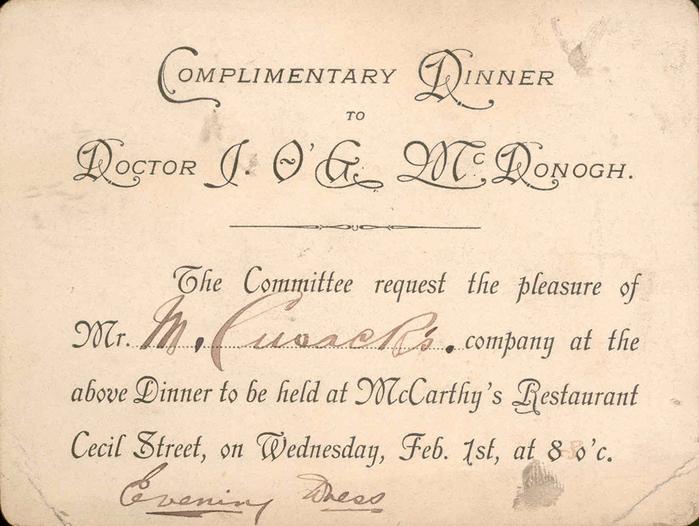 COMPLIMENTARY DINNER
TO
DOCTOR J. O'G. McDONOGH.
The Committee request the pleasure of
Mr. M. Cusack's. company at the
above Dinner to be held at McCarthy's Restaurant
Cecil Street, on Wednesday, Feb. 1st, at 8 o'c.
Evening Dress